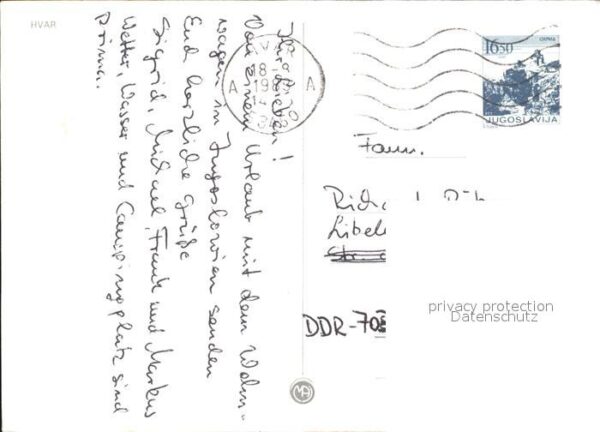 HVAR
Ihr Lieben!
Von einem Urlaub mit dem Wohn=
wagen in Jugoslawien senden
Euch herzliche Grüße
Sigrid, Michael, Frank und Markus
Wetter, Wasser und Campingplatz sind
Prima.
A A
16.50
JUGOSLAVIJA
Fam.
DDR-70
privacy protection
Datenschutz